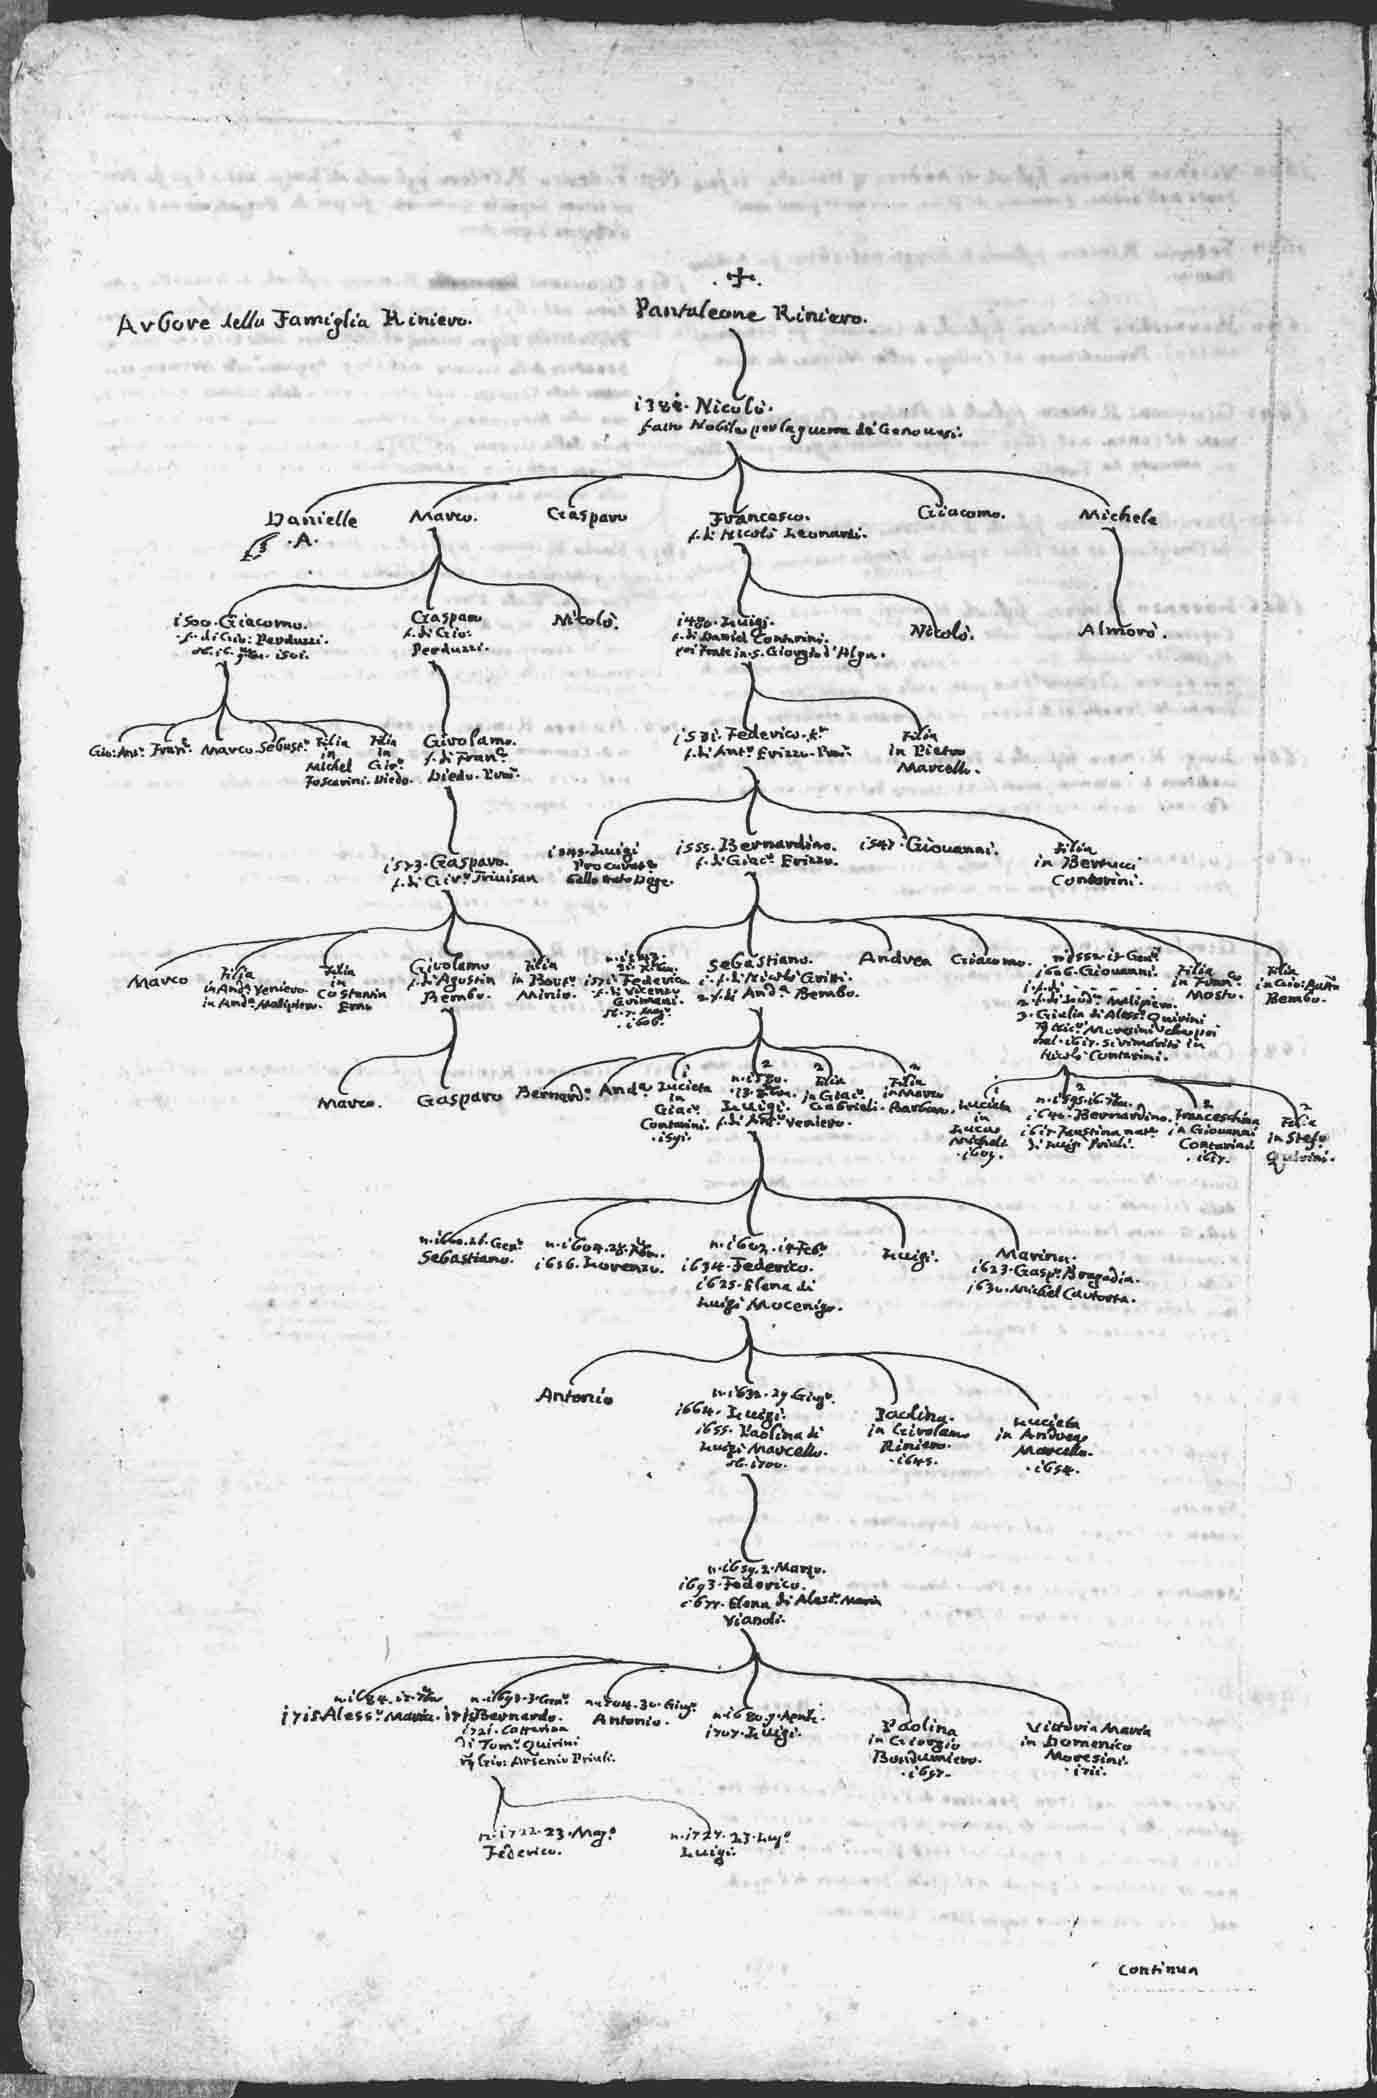 Arbore della Famiglia Riniero.
Pantaleone Riniero.
Nicolò.
fatto Nobile per la guerra de' Genovesi.
Danielle
·A·
Marco.
Gasparo
Francesco.
f. di Nicolò Leonardi.
Giacomo.
Michele
1500·Giacomo.
f. di Gio: Perduzzi.
Gasparo
f. di Gio:
Perduzzi.
Nicolò.
1480·Luigi.
f. di Daniel Contarini.
poi Frate in S. Giorgio d'Alga.
Nicolò.
Almorò.
Gio: Ant.º
Fran.º
Marco
Sebast.º
Filia
in
Michel
Foscarini.
Filia
in
Gir.º
Diedo.
Girolamo.
f. di Fran.º
Diedo
Federico
f. di Ant.º Erizzo
Filia
in Pietro
Marcello.
1573·Gasparo.
f. di Gir.º Trivisan
Luigi
Procurat.
1555·Bernardino.
f. di Giac.º Erizzo.
1547·Giovanni.
Filia
in Bertucci
Contarini.
Marco
Filia
in And.ª Veniero
in And.ª Malipiero.
Filia
in
Costantin
Ermo
Girolamo
f. di Agostin
Bembo.
Filia
Minio.
1571·Federico
f. di Vicenzo
Grimani.
1606.
Sebastiano.
1·f. di Nicolò Gritti.
2·f. di And.ª Bembo.
Andrea
Giacomo.
1606·Giovanni.
1·f. di
2·f. di Malipiero.
3·Giulia di Aless.º Quirini
Moresini
nel·1617· si rimaritò in
Nicolò Contarini.
Filia
in Fran.co
Mosto.
Filia
in Gio: Batta
Bembo.
Marco.
Gasparo
Bernard.º
And.ª
1
Lucieta
in
Giac.º
Contarini.
·1591·
2
n·1580.
Luigi.
f. di Ant.º Veniero.
2
Filia
in Giac.º
Gabrieli.
2
Filia
in Marco
Barbaro.
1
Lucieta
in
Lucas
Michele
·1609.
2
1640·Bernardino.
1617·Faustina nat.ª
di Luigi Priuli.
2
Franceschina
in Giovanni
Contarini
·1617.
2
Filia
in Stef.º
Quirini.
n·1600·26·Gen.º
Sebastiano.
1636·Lorenzo.
n·1602·14·Feb.º
1634·Federico.
1625·Elena di
Luigi Mocenigo.
Luigi.
Marina.
1623·Gasp.º Bragadin.
1630·Michel Cavtorta.
Antonio
n·1632·29·Giug.º
1664·Luigi.
1655·Paolina di
Luigi Marcello.
ob. 1700.
Paolina.
in Girolamo
Riniero.
·1645.
Lucieta
in Andrea
Marcello.
·1654.
n·1659·2·Marzo.
1693·Federico.
1677·Elena di Aless.º Maria
Vianoli.
1715 Aless.º Maria.
n·1693·3·Gen.º
Bernardo.
1721·Cattarina
di Tom.º Quirini
Gio: Arsenio Priuli.
n·1704·30·Giug.º
Antonio.
n·1680·9·April.
1707·Luigi.
Paolina
in Giorgio
Bondumiero.
·1697.
Vittoria Maria
in Domenico
Moresini.
·1711.
n·1722·23·Mag.º
Federico.
n·1724·23·Lug.º
Luigi.
Continua